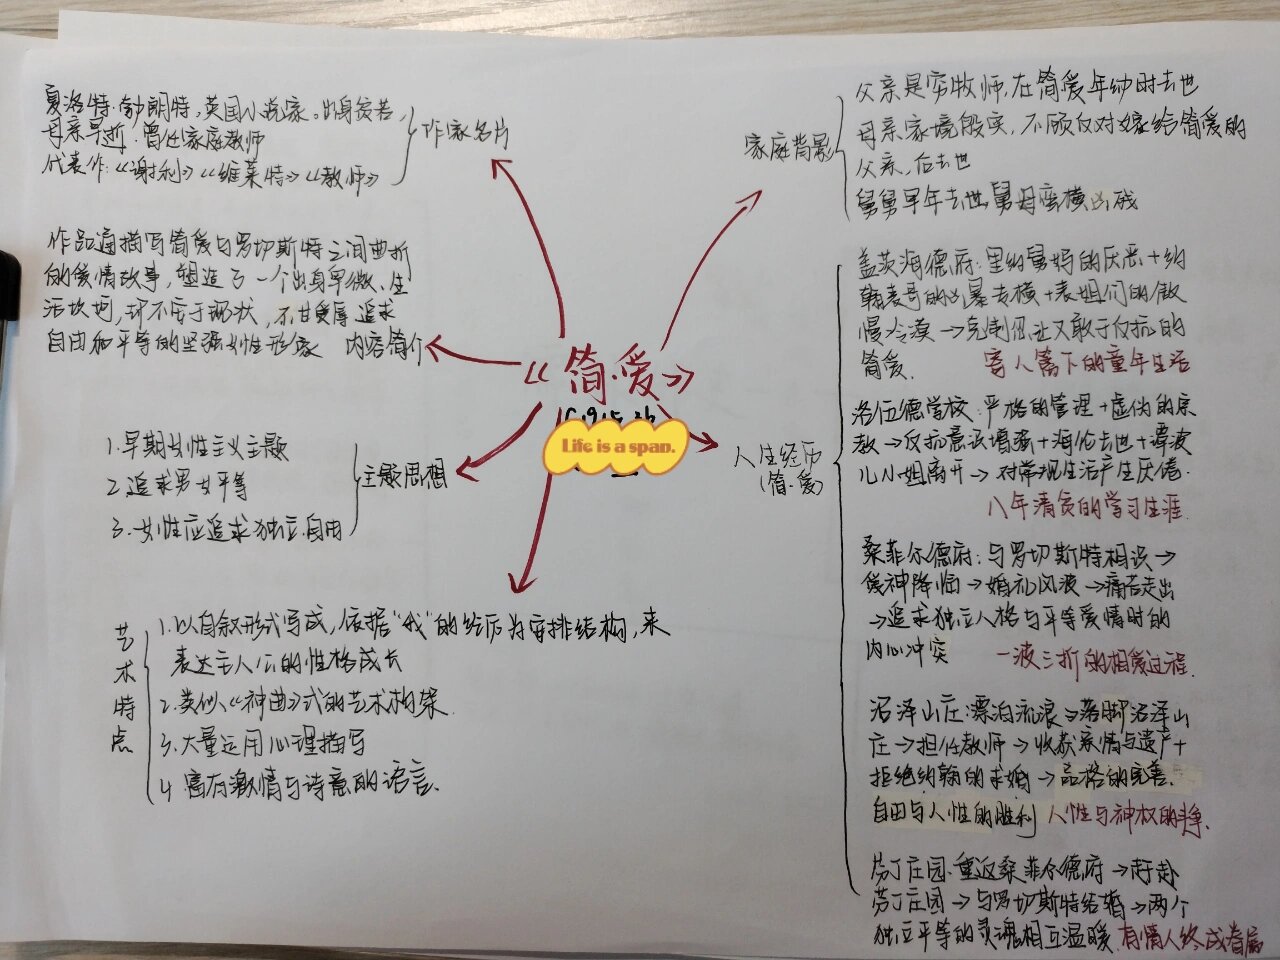 夏洛特·勃朗特，英国小说家。出身贫苦，
母亲早逝，曾任家庭教师
代表作：《谢利》《维莱特》《教师》
作家名片
作品通描写简爱与罗切斯特之间曲折
的爱情故事，塑造了一个出身卑微、生
活坎坷，却不安于现状，不甘受辱，追求
自由和平等的坚强女性形象
内容简介
1.早期女性主义主题
2.追求男女平等
3.女性应追求独立、自由
主题思想
艺术特点
1.以自叙形式写成，依据“我”的经历为安排结构，来
表达主人公的性格成长
2.类似《神曲》式的艺术构架
3.大量运用心理描写
4.富有激情与诗意的语言.
《简·爱》
Life is a span.
家庭背影
父亲是穷牧师，在简爱年幼时去世
母亲家境殷实，不顾反对嫁给简爱的
父亲，后去世
舅舅早年去世，舅母蛮横凶残
人生经历
(简·爱)
盖茨海德府：里德舅妈的厌恶+约
翰表哥的凶暴专横+表姐们的傲
慢冷漠→克制但又敢于反抗的
简爱. 寄人篱下的童年生活
洛伍德学校：严格的管理+虚伪的宗
教→反抗意识增强+海伦去世+谭波
儿小姐离开→对常规生活产生厌倦.
八年清贫的学习生涯.
桑菲尔德府：与罗切斯特相识→
爱神降临→婚礼风波→痛苦走出
→追求独立人格与平等爱情时的
内心冲突 一波三折的相爱过程.
沼泽山庄：漂泊流浪→落脚沼泽山
庄→担任教师→收获亲情与遗产+
拒绝约翰的求婚→品格的完善.
自由与人性的胜利 人性与神权的斗争.
芬丁庄园.重返桑菲尔德府→赶赴
芬丁庄园→与罗切斯特结婚→两个
独立平等的灵魂相互温暖 有情人终成眷属